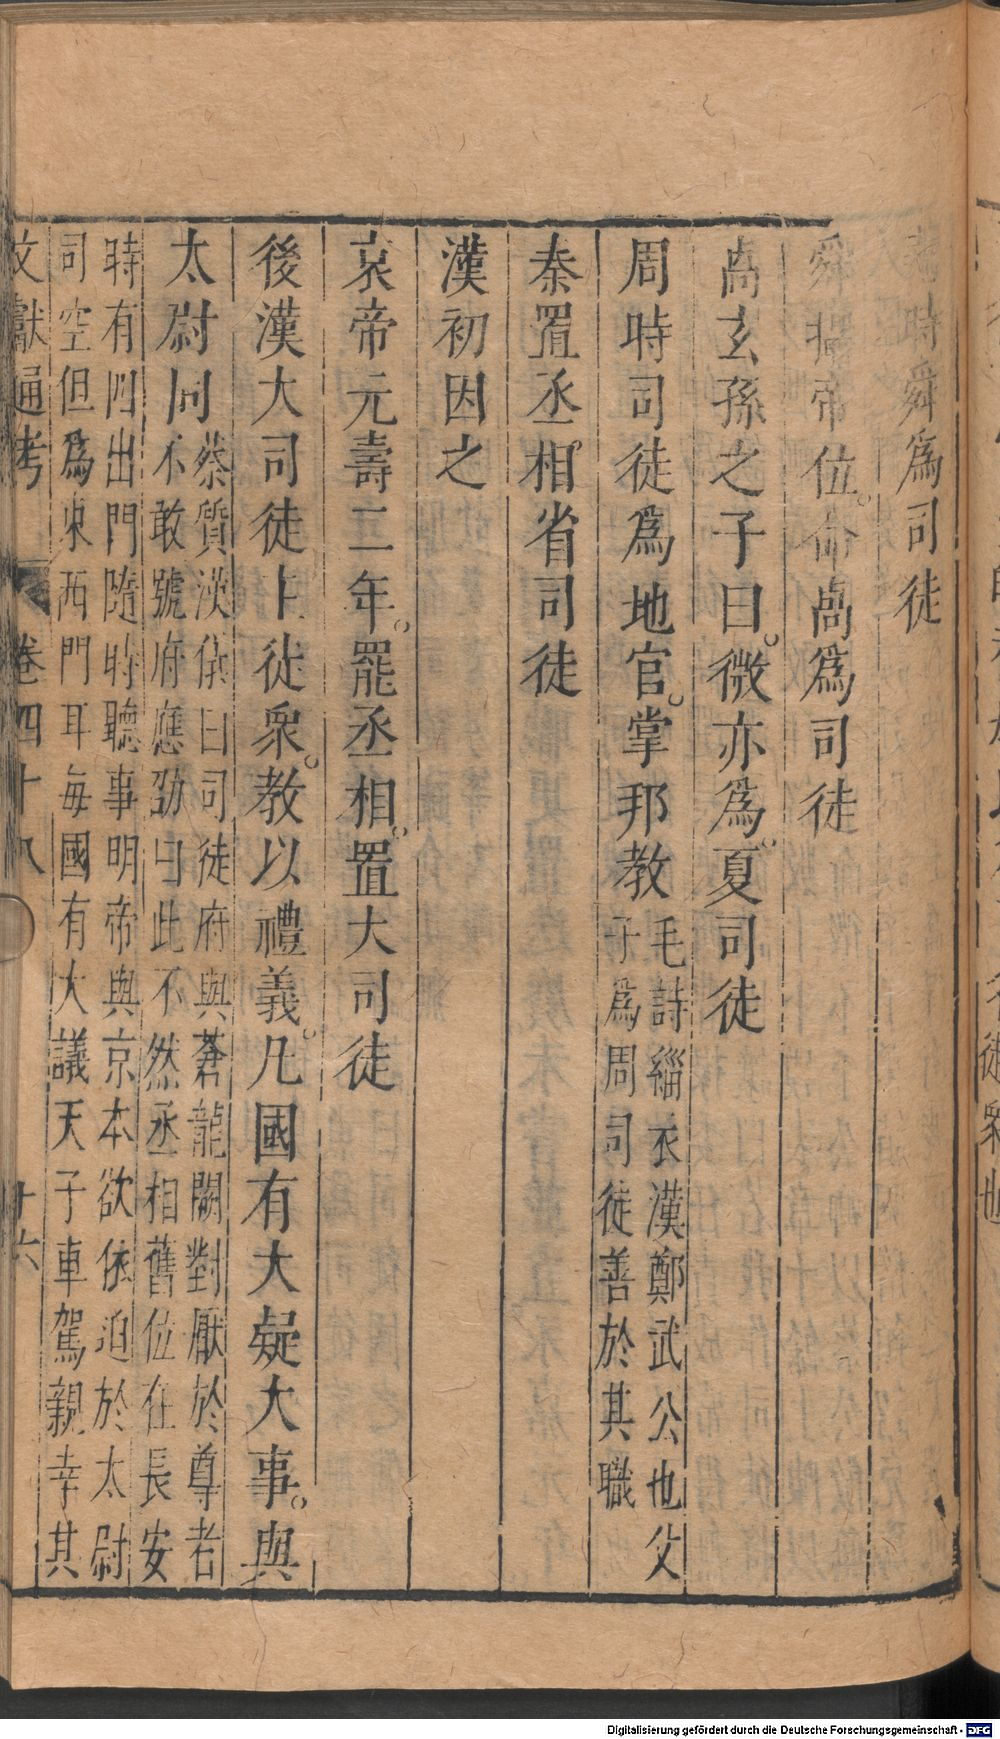 堯時舜爲司徒
舜攝帝位命卨爲司徒
卨玄孫之子曰微亦爲夏司徒
周時司徒爲地官掌邦教毛詩緇衣漢鄭武公也父
子爲周司徒善於其職
秦置丞相省司徒
漢初因之
哀帝元壽二年罷丞相置大司徒
後漢大司徒主徒衆教以禮義凡國有大疑大事與
太尉同蔡質漢儀曰司徒府與蒼龍闕對厭於尊者
不敢號府應劭曰此不然丞相舊位在長安
時有四出門隨時聽事明帝與京本欲依迫於太尉
司空但爲東西門耳每國有大議天子車駕親幸其
文獻通考 卷四十八 十六
Digitalisierung gefördert durch die Deutsche Forschungsgemeinschaft - DFG